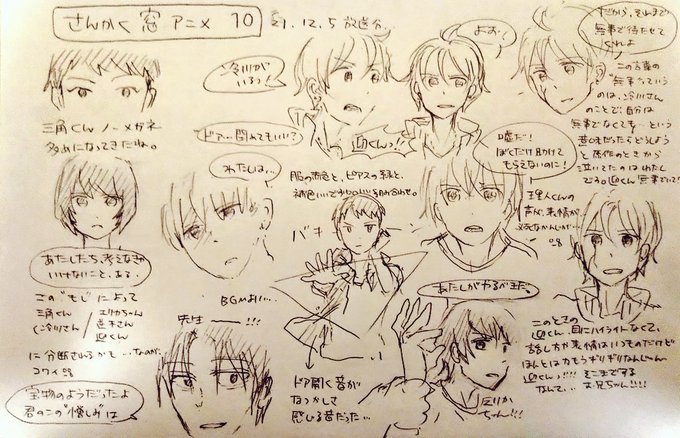 さんかく窓アニメ 10
21.12.5 放送分。
冷川が
いろっ！
よお！
だから、それまで
無事で待たせて
くれよ
この言葉の
"無事"っていう
のは、冷川さん
のことで、自分は
無事でなくても…という
と原作のときから
泣いてたのはわたし
です。迎くん無事でいて！
三角くんノーメガネ
多めになってきたね。
ドアー閉めてもいい？
迎くんっ!!
嘘だ！
ぼくだけ助けて
もらえないのに！
わたしは…
服の赤色と、ピアスの緑と、
補色
組み合わせ。
理人くんの
声が、表情が
バキ
あたしたち、考えなきゃ
いけないこと、ある。
この"もじ"によって
三角くん
冷川さん
エリカちゃん
逆木さん
迎くん
に分断される
コワイ
BGM
あたしがやるべきだ。
先生ー!!!
このときの
迎くん、目にハイライトなくて、
話し方や表情はいつものだけど
ほんとは力もうギリギリなんじゃん
迎くん!!!! そこまでする
なんて… お兄ちゃん!!!!
ドア開く音が
なつかしく
感じる音だった…
エリカ
ちゃん!!
宝物のようだったよ
君のこの"憎しみ"は